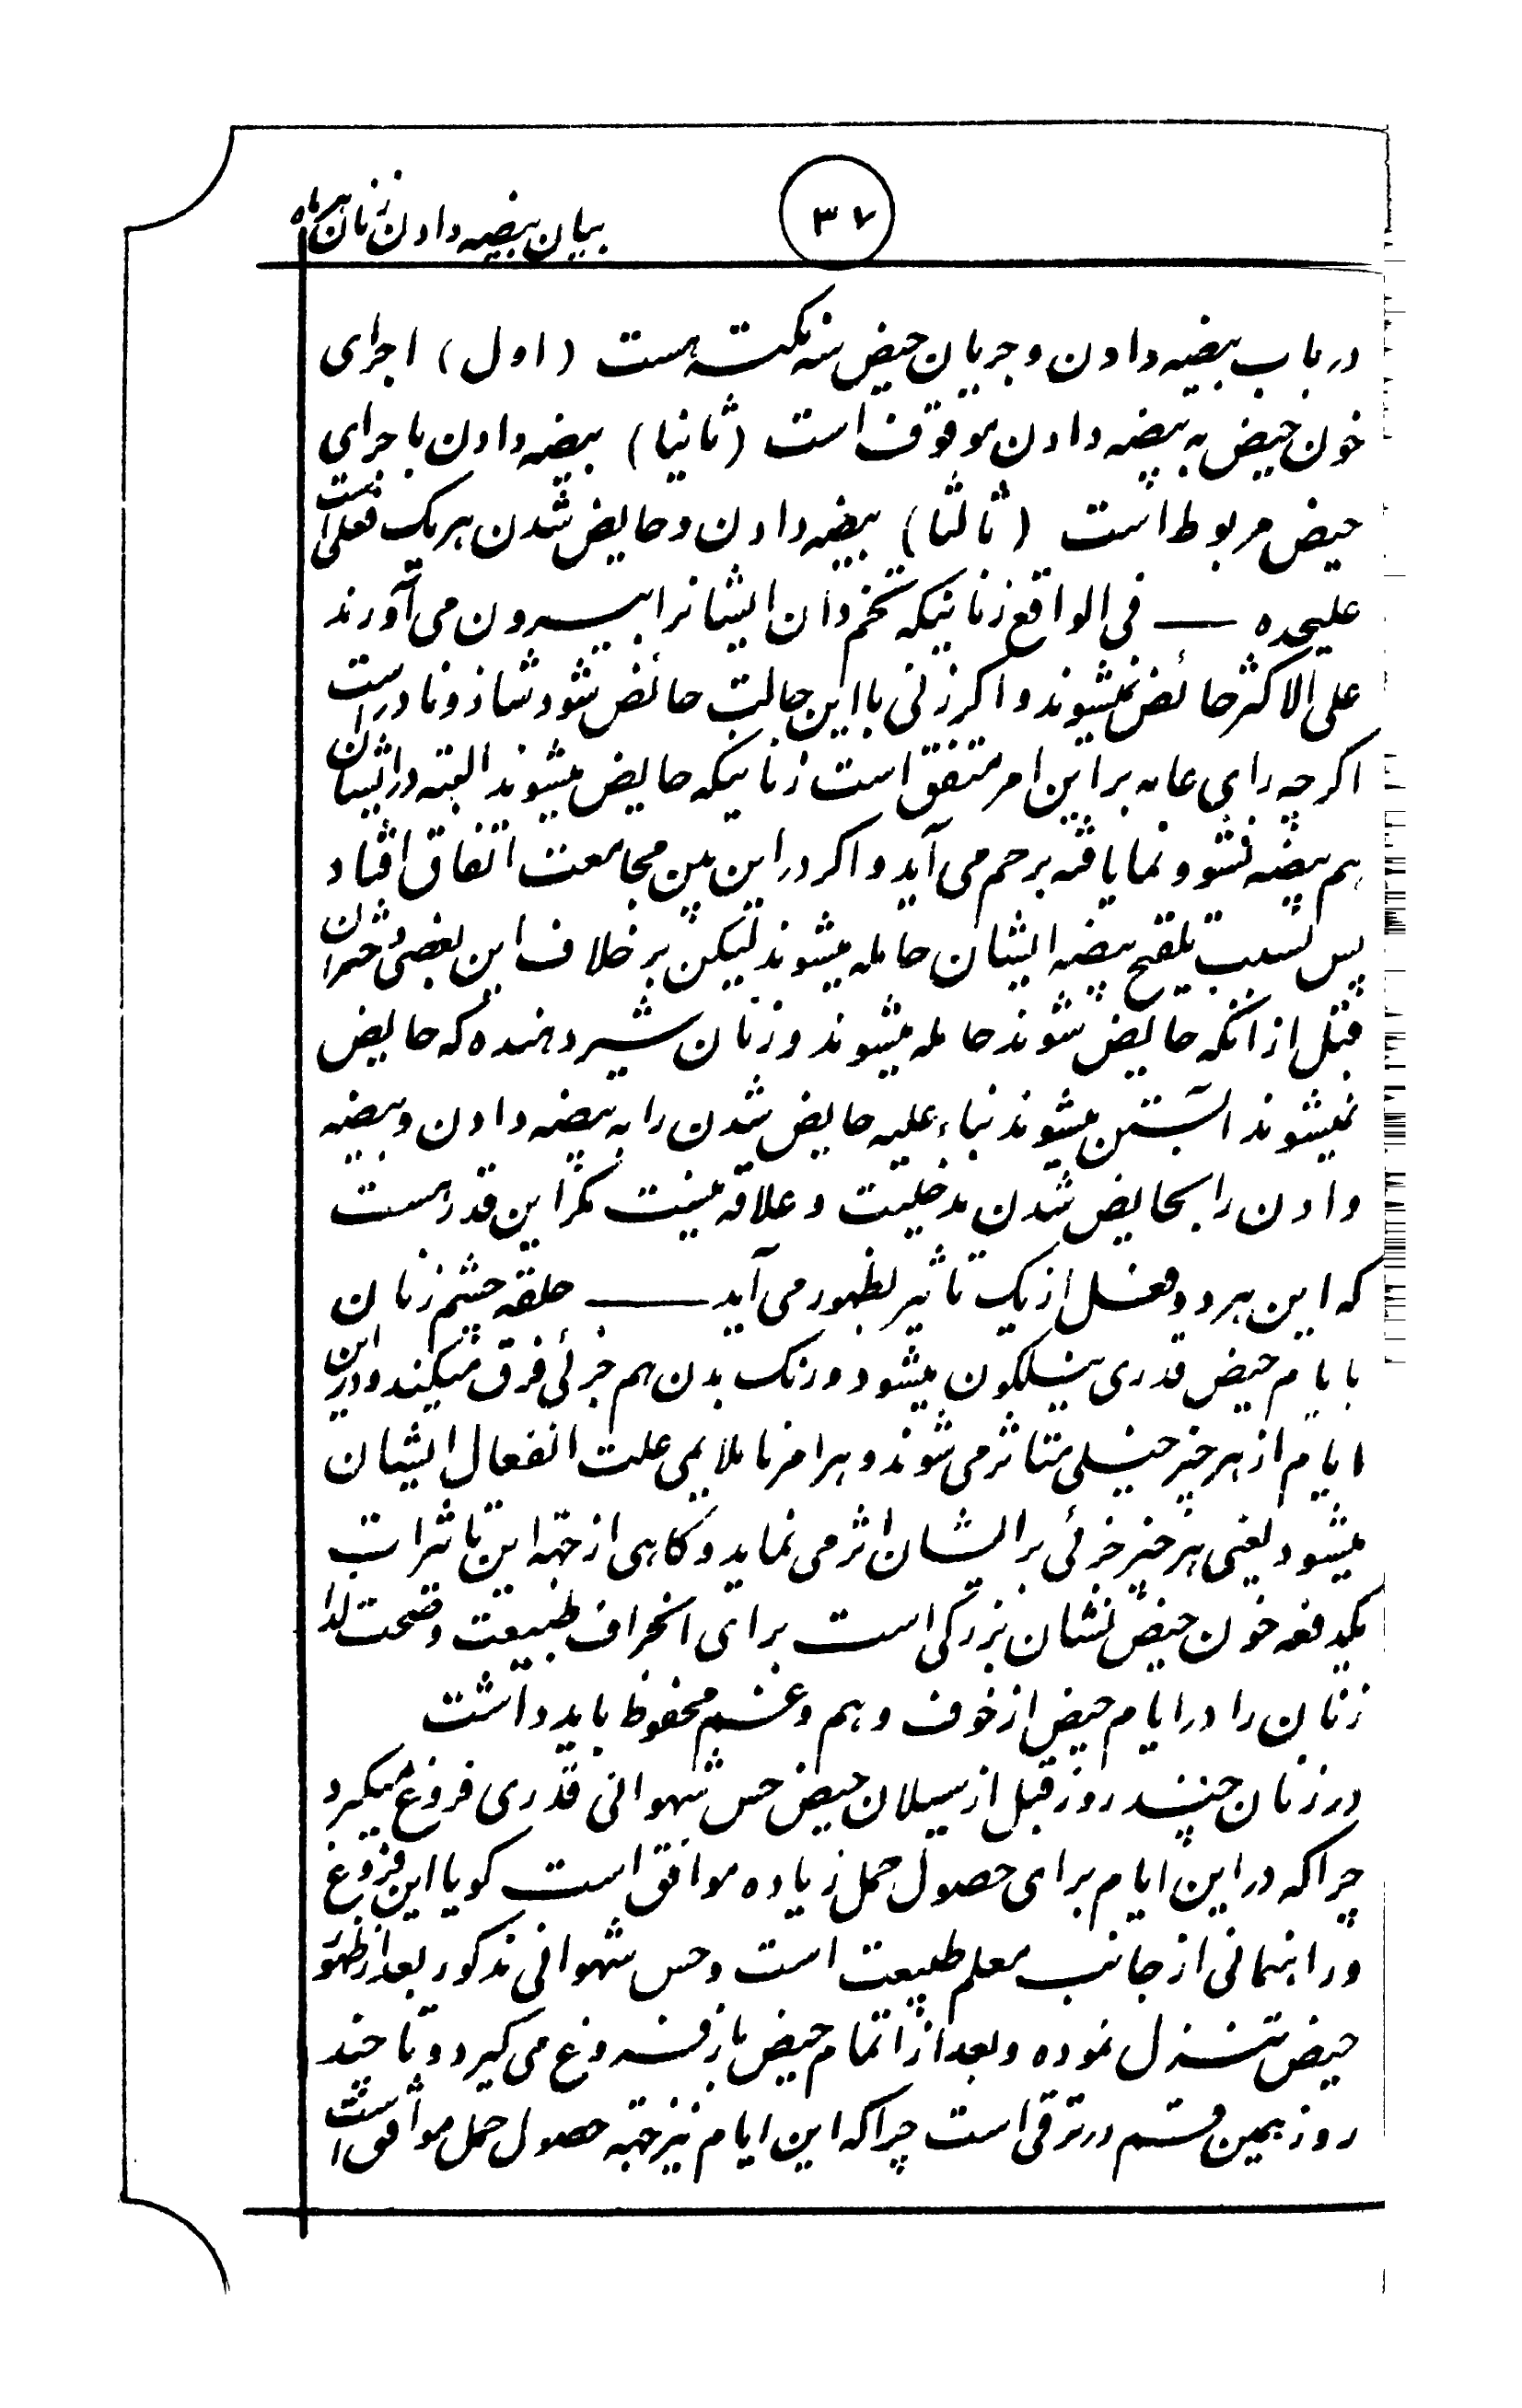 بیان بیضه دادن زنان هر ماه
۳۷
در باب بیضه دادن و جریان حیض سه نکته هست (اول) اجرای
خون حیض به بیضه دادن موقوف است (ثانیا) بیضه دادن با جرای
حیض مربوط است (ثالثا) بیضه دادن و حایض شدن هر یک فعلی است
علیحده — فی الواقع زنانیکه تخم دان ایشانرا بیرون می آورند
علی الاکثر حائض نمیشوند و اکر زنی با این حالت حائض شود شاذ و نادر است
اکرچه رای عامه بر این امر متفق است زنانیکه حایض میشوند البته در ایشان
هم بیضه نشو و نما یافته برحم می آید و اکر در این بین مجامعت اتفاق افتاد
پس بسبب تلقیح بیضه ایشان حامله میشوند لیکن بر خلاف این بعضی دختران
قبل از انکه حایض شوند حامله میشوند و زنان شیر دهنده که حایض
نمیشوند آبستن میشوند بناء علیه حایض شدن را به بیضه دادن و بیضه
دادن را بحایض شدن مدخلیت و علاقه نیست مکر این قدر هست
که این هر دو فعل از یک تاثیر بظهور می آید — حلقه چشم زنان
با یام حیض قدری نیلکون میشود و رنک بدن هم جزئی فرق میکند و در این
ایام از هر چیز خیلی متاثر می شوند و هر امر نا ملایمی علت انفعال ایشان
میشود یعنی هر چیز جزئی بر ایشان اثر می نماید و کاهی از جهة این تاثرات
یکدفعه خون حیض نشان بزرکی است برای انحراف طبیعت و صحت لذا
زنان را در ایام حیض از خوف و هم و غم محفوظ باید داشت
در زنان چند روز قبل از سیلان حیض حس شهوانی قدری فروغ میکیرد
چرا که در این ایام برای حصول حمل زیاده موافق است کویا این فروغ
و راهنمائی از جانب معلم طبیعت است و حس شهوانی مذکور بعد از ظهور
حیض تنزل نموده و بعد از اتمام حیض باز فروغ می کیرد و تا چند
روز بهمین قسم در ترقی است چرا که این ایام نیز جهة حصول حمل موافق است